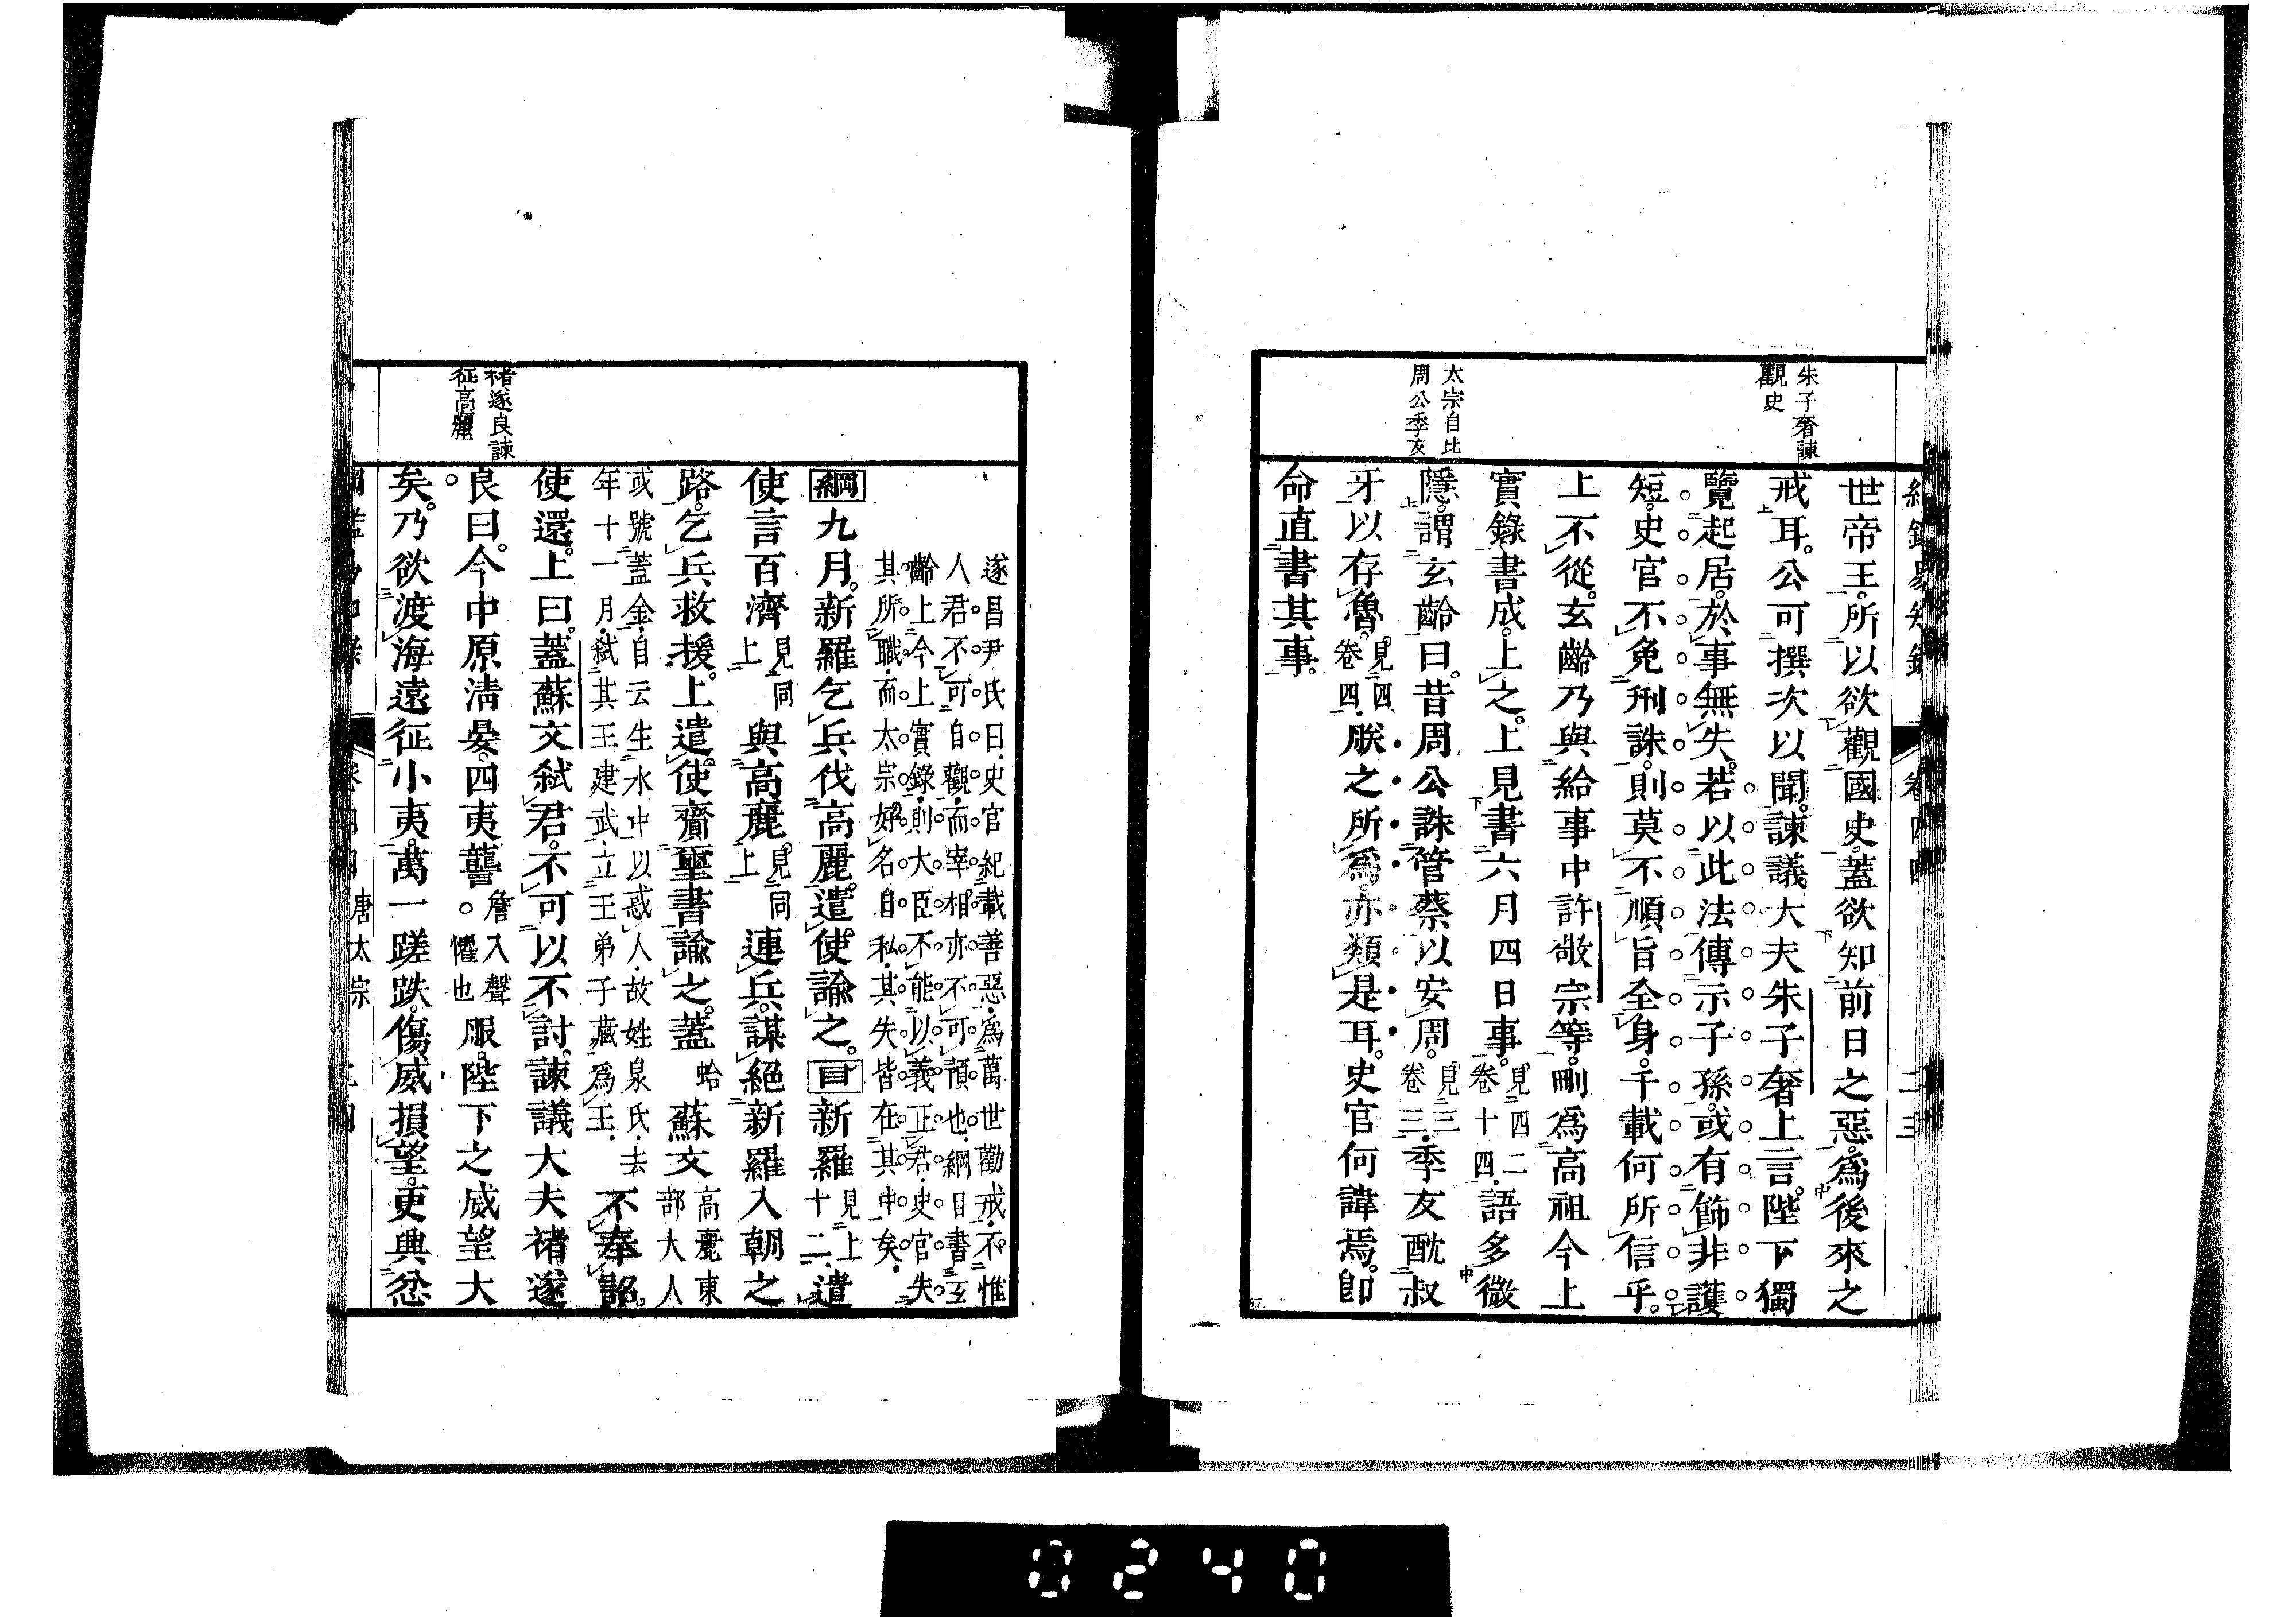 朱子奢諫
觀史
太宗自比
周公季友
世帝王所以欲觀國史蓋欲知前日之惡為後來之
戒耳公可撰次以聞諫議大夫朱子奢上言陛下獨
覽起居於事無失若以此法傳示子孫或有飾非護
短史官不免刑誅則莫不順旨全身千載何所信乎
上不從玄齡乃與給事中許敬宗等刪為高祖今上
實錄書成上之上見書六月四日事見四二卷十四語多微
隱謂玄齡曰昔周公誅管蔡以安周見三卷三季友酖叔
牙以存魯見四卷四朕之所為亦類是耳史官何諱焉即
命直書其事
遂昌尹氏曰史官紀載善惡為萬世勸戒不惟
人君不可自觀而宰相亦不可預也綱目書玄
齡上今上實錄則大臣不能以義正君史官失
其所職而太宗好名自私其失皆在其中矣
綱九月新羅乞兵伐高麗遣使諭之目新羅見上十二遣
使言百濟見同上與高麗見同上連兵謀絕新羅入朝之
路乞兵救援上遣使齎璽書諭之蓋蛤蘇文高麗東部大人
或號蓋金自云生水中以惑人故姓泉氏去
年十一月弒其王建武立王弟子藏為王不奉詔
使還上曰蓋蘇文弒君不可以不討諫議大夫褚遂
良曰今中原清晏四夷讋詹入聲懼也服陛下之威望大
矣乃欲渡海遠征小夷萬一蹉跌傷威損望更興忿
褚遂良諫
征高麗
唐太宗
0240